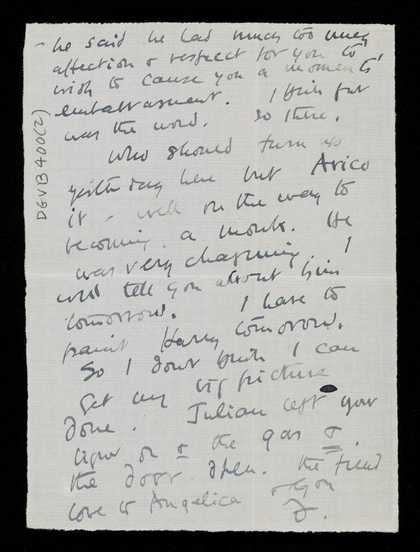 - he said he had much too much
affection & respect for you to
wish to cause you a moments'
embarrassment. I think that
was the word. So there.
Who should turn up
yesterday here but Arico
it - well on the way to
becoming a monk. He
was very charming. I
will tell you about him
tomorrow. I have to
paint Harry tomorrow.
So I dont think I can
get my big picture
done. Julian left your
light on & the gas &
the door open. The fiend
love to Angelica & you
D.
DGVB400(2)